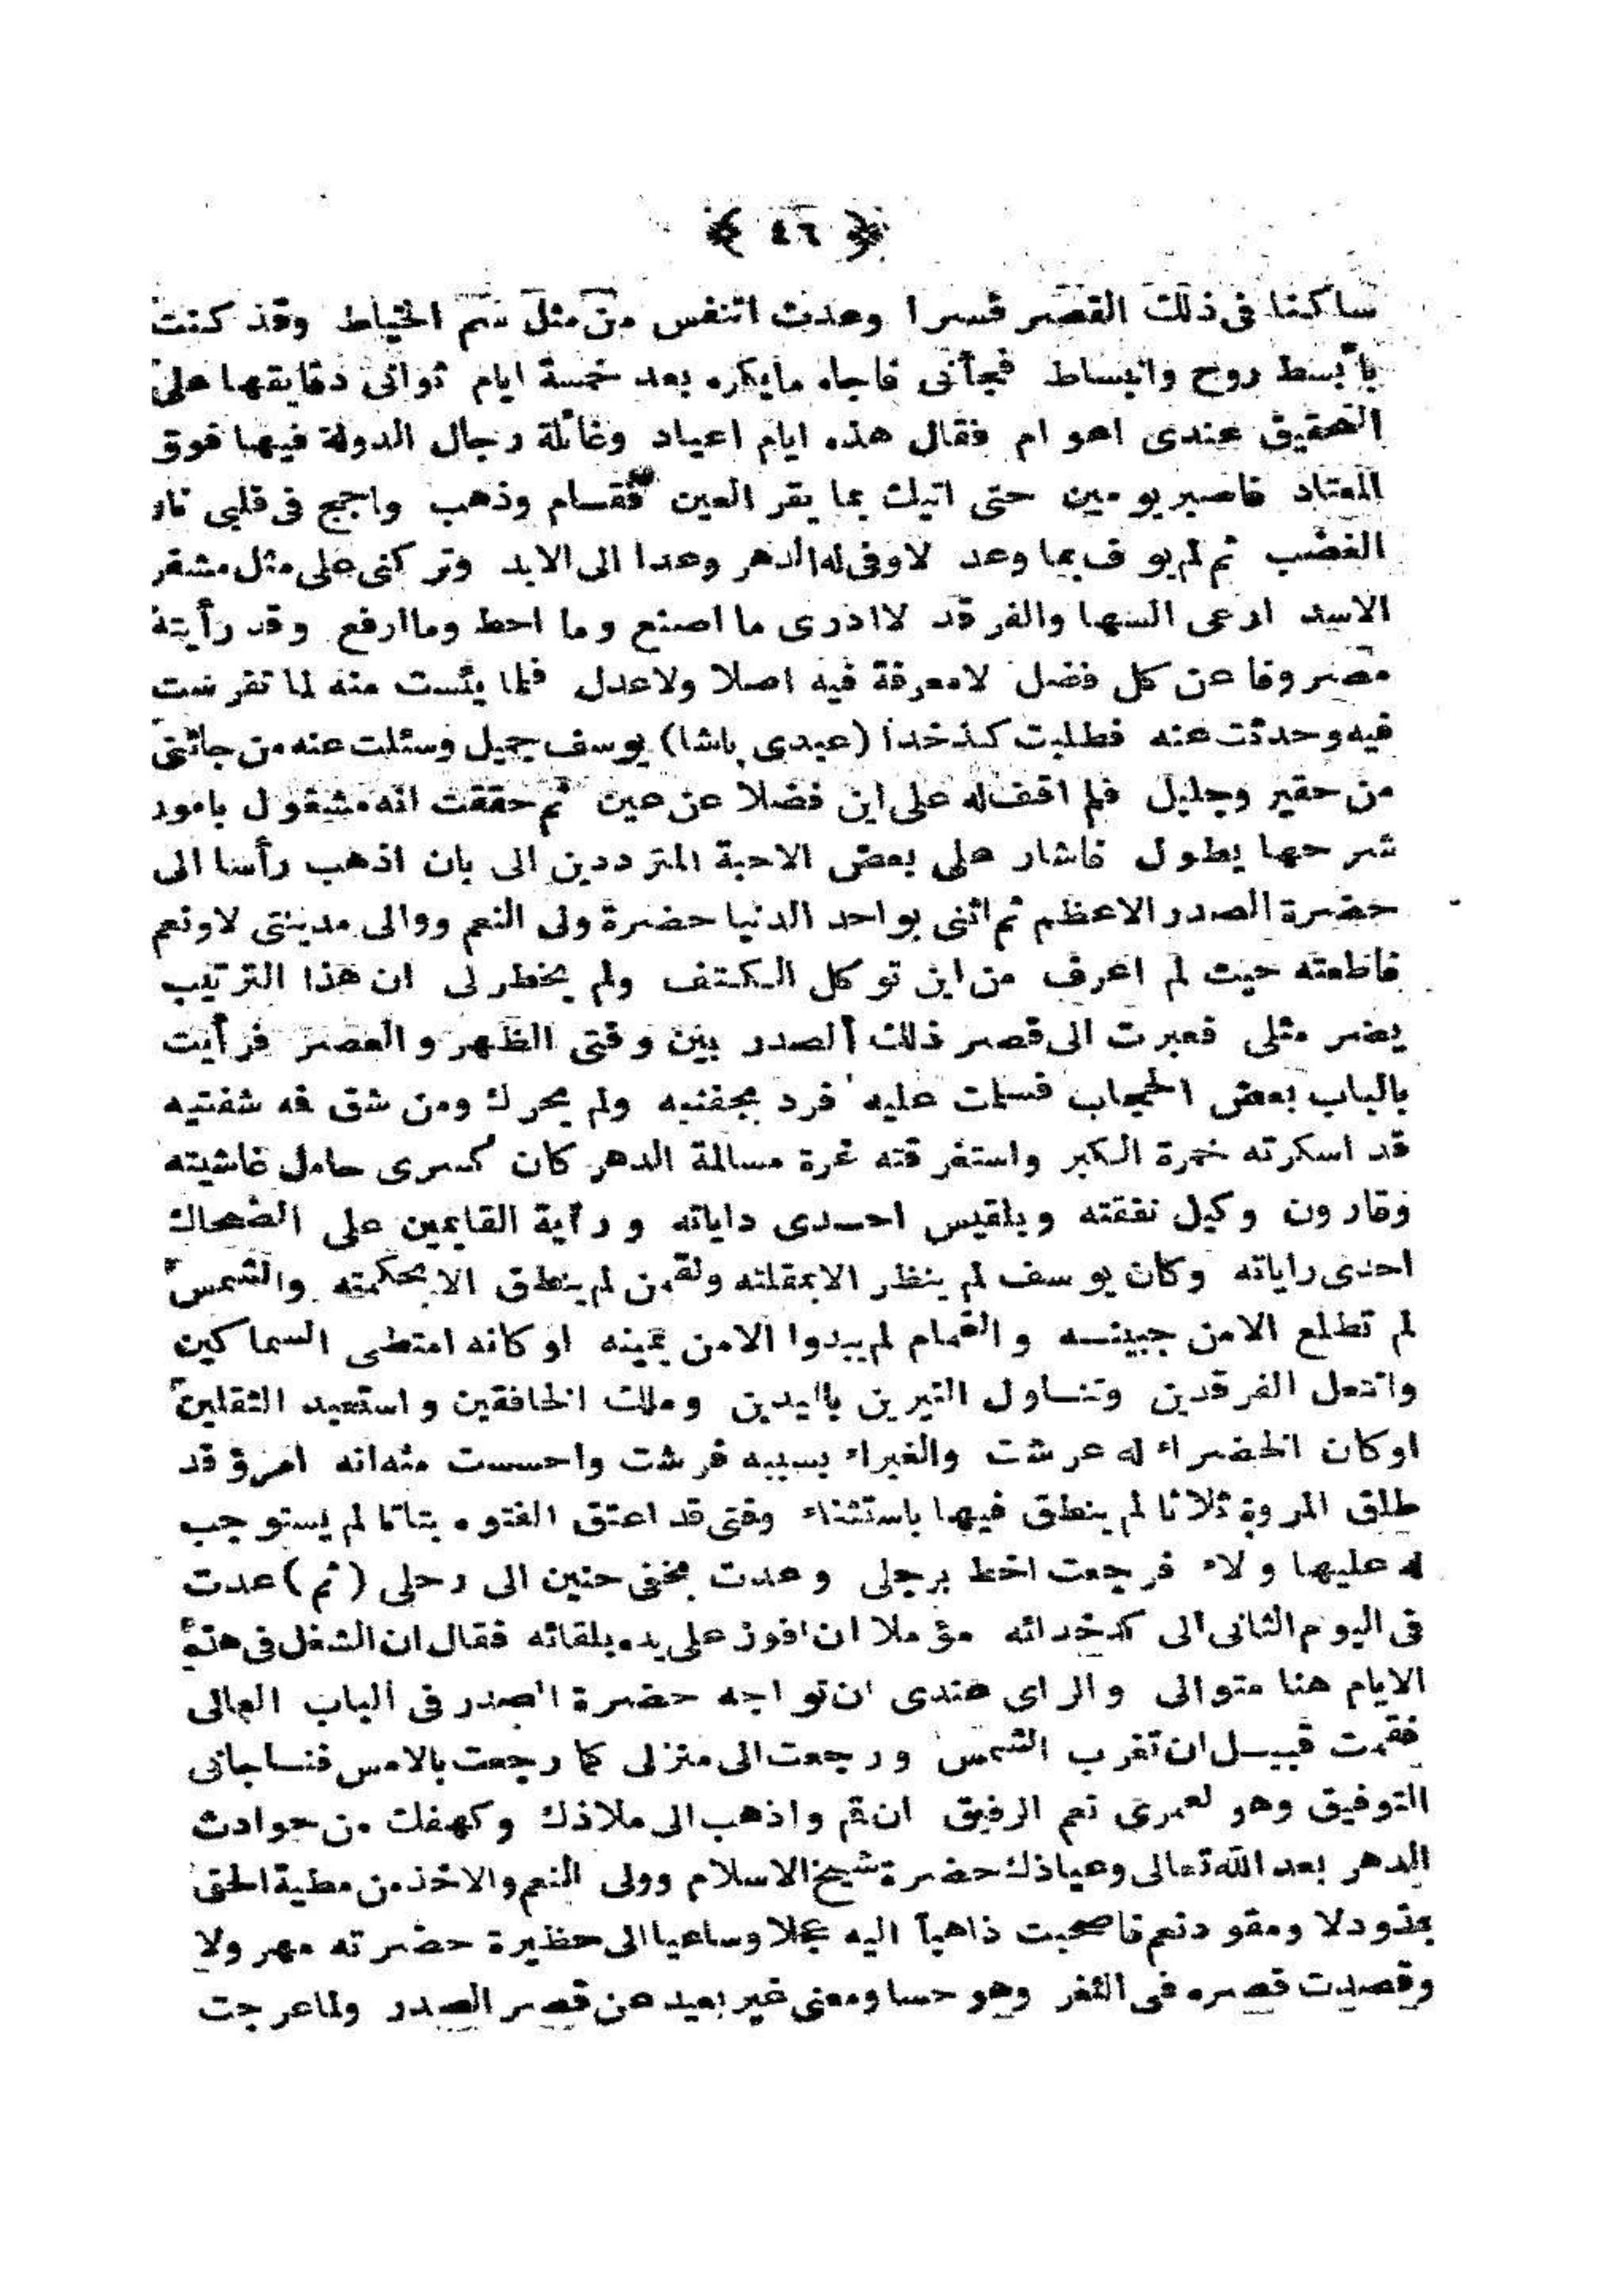 ﴿ ٤٦ ﴾
ساكنا فى ذلك القصر قسرا وعدت اتنفس من مثل سم الخياط وقد كنت
بابسط روح وانبساط فجأنى فاجاه مايكره بعد خمسة ايام ثوانى دقايقها على
التحقيق عندى اعوام فقال هذه ايام اعياد وغائلة رجال الدولة فيها فوق
المعتاد فاصبر يومين حتى اتيك بما يقر العين فقام وذهب واجج فى قلبى نار
الغضب ثم لم يوف بما وعد لاوفى له الدهر وعدا الى الابد وتركنى على مثل مشفر
الاسد ارعى السها والفرقد لاادرى ما اصنع وما احط وماارفع وقد رأيته
مصروفا عن كل فضل لامعرفة فيه اصلا ولاعدل فلما يئست منه لما تفرست
فيه وحدثت عنه فطلبت كذخدا (عبدى باشا) يوسف جميل وسئلت عنه من جائنى
من حقير وجليل فلم اقف له على اين فضلا عن عين ثم حققت انه مشغول بامور
شرحها يطول فاشار على بعض الاحبة المترددين الى بان اذهب رأسا الى
حضرة الصدر الاعظم ثم اثنى بواحد الدنيا حضرة ولى النعم ووالى مدينتى لاونعم
فاطعته حيث لم اعرف من اين توكل الكتف ولم يخطر لى ان هذا الترتيب
يضر مثلى فعبرت الى قصر ذلك الصدر بين وقتى الظهر والعصر فرأيت
بالباب بعض الحجاب فسلمت عليه فرد بجفنيه ولم يحرك ومن شق فه شفتيه
قد اسكرته خمرة الكبر واستغرقته غرة مسالمة الدهر كان كسرى حامل غاشيته
وقارون وكيل نفقته وبلقيس احدى داياته وراية القايمين على الضحاك
احدى راياته وكان يوسف لم ينظر الابمقلته ولقمن لم ينطق الابحكمته والشمس
لم تطلع الامن جبينه والغمام لم يبدوا الامن يمينه اوكانه امتطى السماكين
وانتعل الفرقدين وتناول النيرين باليدين وملك الخافقين واستعبد الثقلين
اوكان الخضراء له عرشت والغبراء بسببه فرشت واحسست منه انه امرؤ قد
طلق المروة ثلاثا لم ينطق فيها باستثناء وفتى قد اعتق الفتوه بتاتا لم يستوجب
له عليها ولاء فرجعت اخط برجلى وعدت بخفى حنين الى رحلى (ثم) عدت
فى اليوم الثانى الى كدخدائه مؤملا ان افوز على يده بلقائه فقال ان الشغل فى هذه
الايام هنا متوالى والراى عندى ان تواجه حضرة الصدر فى الباب العالى
فقمت قبيل ان تغرب الشمس ورجعت الى منزلى كما رجعت بالامس فناجانى
التوفيق وهو لعمرى نعم الرفيق ان قم واذهب الى ملاذك وكهفك من حوادث
الدهر بعد الله تعالى وعياذك حضرة شيخ الاسلام وولى النعم والاخذ من مطية الحق
بمذود لا ومقود نعم فاصحبت ذاهبا اليه عجلا وساعيا الى حظيرة حضرته مهرولا
وقصدت قصره فى الثغر وهو حسا ومعنى غير بعيد عن قصر الصدر ولما عرجت